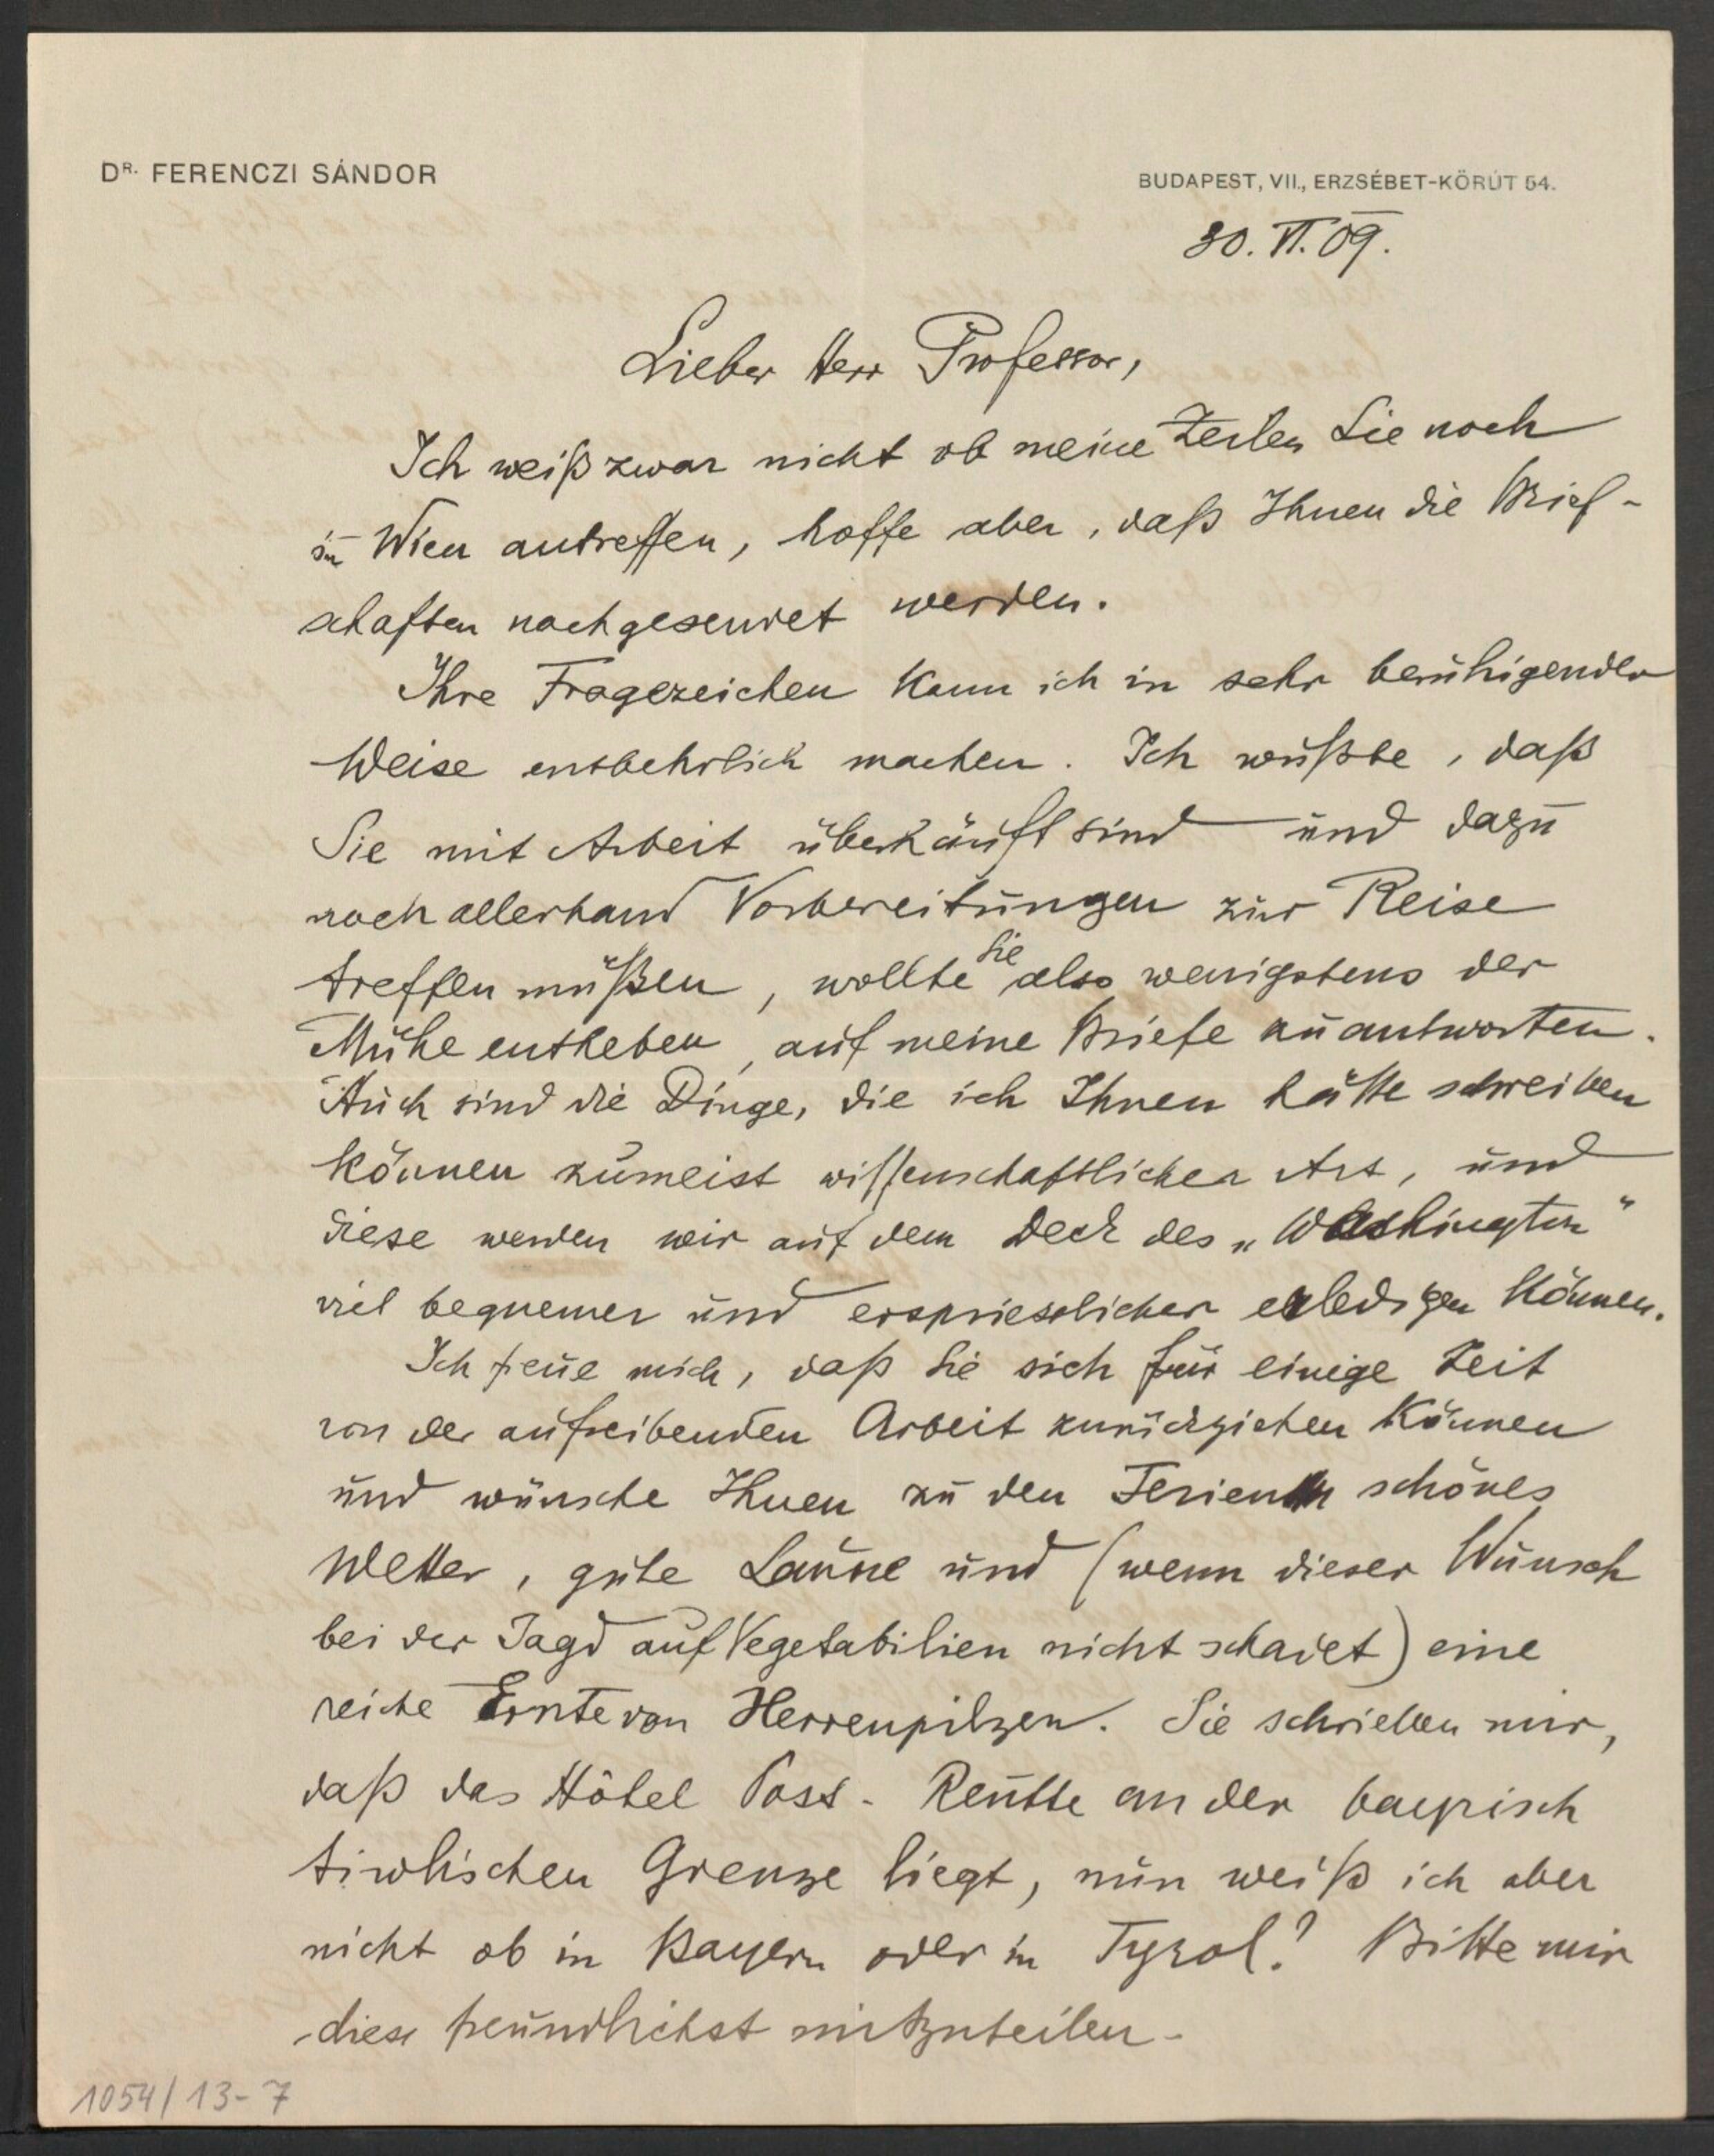 DR. FERENCZI SÁNDOR
BUDAPEST, VII., ERZSÉBET-KÖRÚT 54.
30. VI. 09.
Lieber Herr Professor,
Ich weiß zwar nicht ob meine Zeilen Sie noch
in Wien antreffen, hoffe aber, daß Ihnen die Brief-
schaften nachgesendet werden.
Ihre Fragezeichen kann ich in sehr beruhigender
Weise entbehrlich machen. Ich wußte, daß
Sie mit Arbeit überhäuft sind und dazu
noch allerhand Vorbereitungen zur Reise
treffen müßen, wollte Sie also wenigstens der
Mühe entheben, auf meine Briefe zu antworten.
Auch sind die Dinge, die ich Ihnen hätte schreiben
können zumeist wissenschaftlicher Art, und
diese werden wir auf dem Deck des „Washington“
viel bequemer und erspriesslicher erledigen können.
Ich freue mich, daß Sie sich für einige Zeit
von der aufreibenden Arbeit zurückziehen können
und wünsche Ihnen zu den Ferien schönes
Wetter, gute Laune und (wenn dieser Wunsch
bei der Jagd auf Vegetabilien nicht schadet) eine
reiche Ernte von Herrenpilzen. Sie schrieben mir,
daß das Hôtel Post-Reutte an der bayrisch
tirolischen Grenze liegt, nun weiß ich aber
nicht ob in Bayern oder in Tyrol? Bitte mir
dies freundlichst mitzuteilen.
1054/13-7